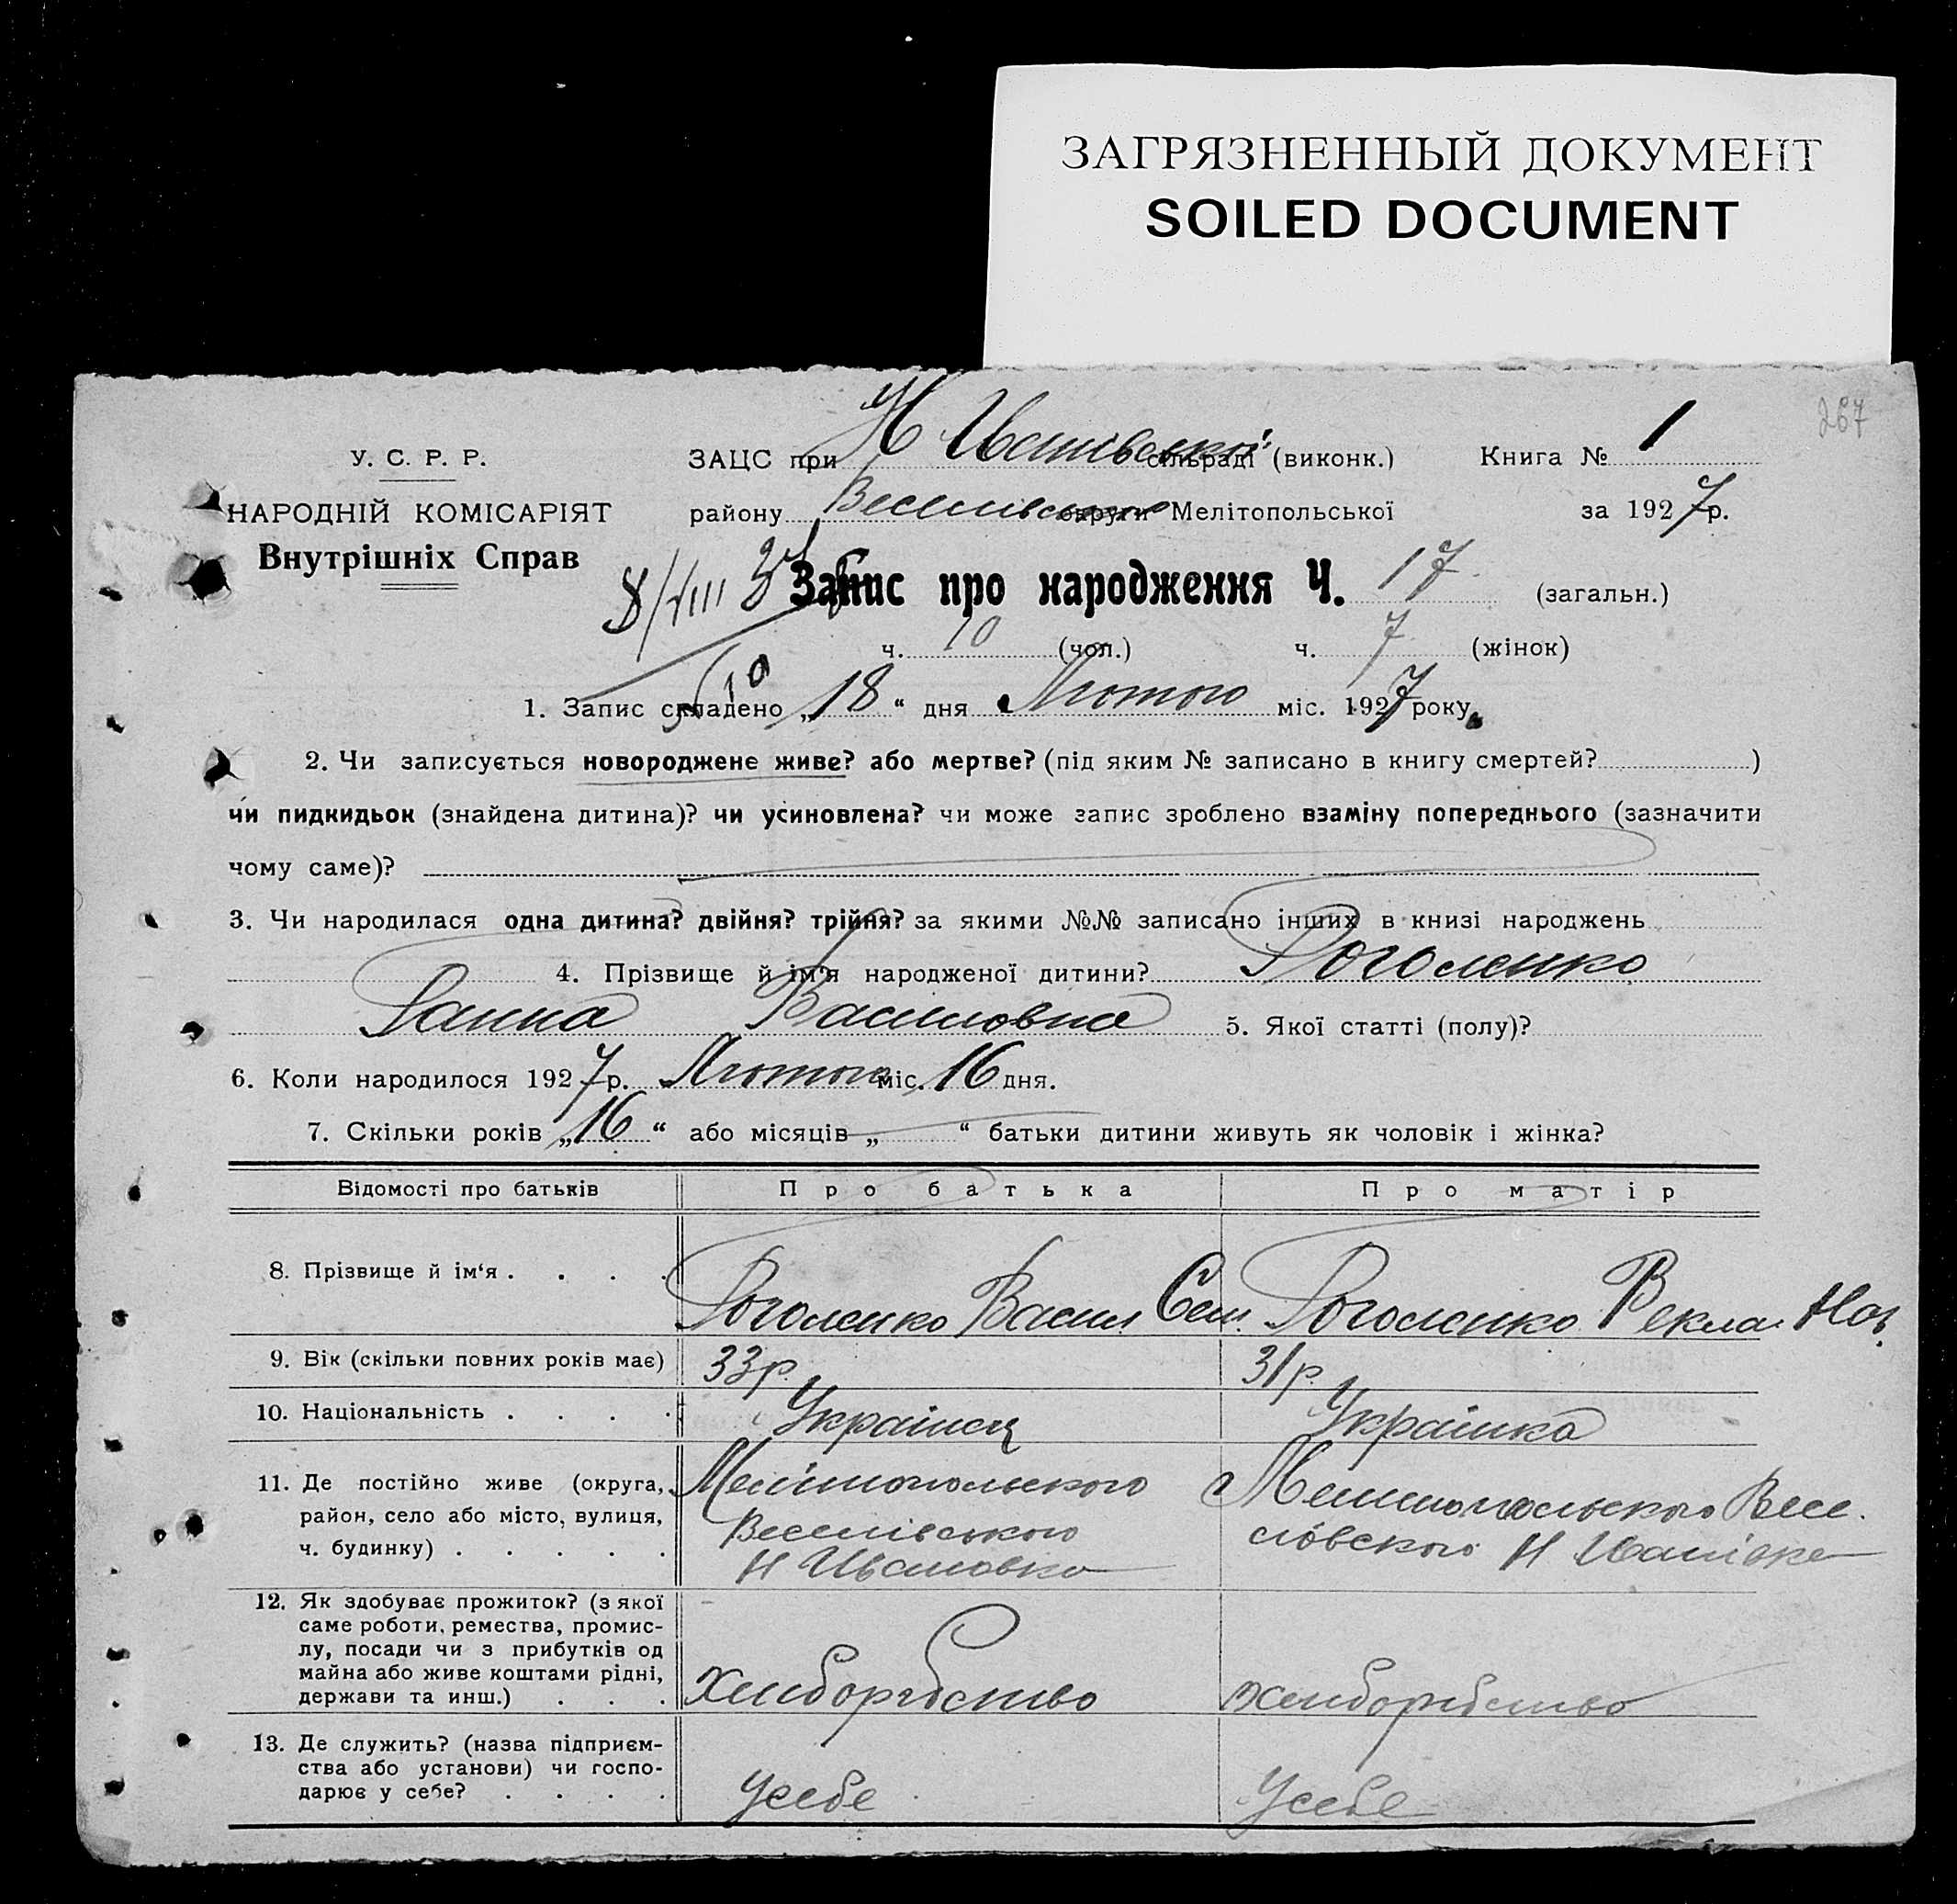 ЗАГРЯЗНЕННЫЙ ДОКУМЕНТ
SOILED DOCUMENT
267
У. С. Р. Р.
НАРОДНІЙ КОМІСАРІЯТ
Внутрішніх Справ
ЗАЦС при Н Иванівської сільраді (виконк.) Книга № 1
району Веселівського округи Мелітопольської за 1927 р.
Запис про народження Ч. 17 (загальн.)
8/VIII
ч. 10 (чол.) ч. 7 (жінок)
1. Запис складено „18“ дня Лютого міс. 1927 року
2. Чи записується новороджене живе? або мертве? (під яким № записано в книгу смертей? )
чи пидкидьок (знайдена дитина)? чи усиновлена? чи може запис зроблено взаміну попереднього (зазначити
чому саме)?
3. Чи народилася одна дитина? двійня? трійня? за якими №№ записано інших в книзі народжень
4. Прізвище й ім'я народженої дитини? Роголенко
Ганна Василовна 5. Якої статті (полу)?
6. Коли народилося 1927 р. Лютого міс. 16 дня.
7. Скільки років „16“ або місяців „ “ батьки дитини живуть як чоловік і жінка?
Відомості про батьків Про батька Про матір
8. Прізвище й ім'я . . . . Роголенко Васил Сем. Роголенко Векла Наз.
9. Вік (скільки повних років має) 33р. 31р.
10. Національність . . . . Українец Українка
11. Де постійно живе (округа, район, село або місто, вулиця, ч. будинку) . . . . .
Мелітопольского
Веселівського
Н Ивановка
Мелитопольского Весе.
ловского Н Иванівке
12. Як здобуває прожиток? (з якої
саме роботи, ремества, промис-
лу, посади чи з прибутків од
майна або живе коштами рідні,
держави та инш.) . . . Хлиборобство хлиборобство
13. Де служить? (назва підприєм-
ства або установи) чи госпо-
дарює у себе? . . . . Усебе Усебе